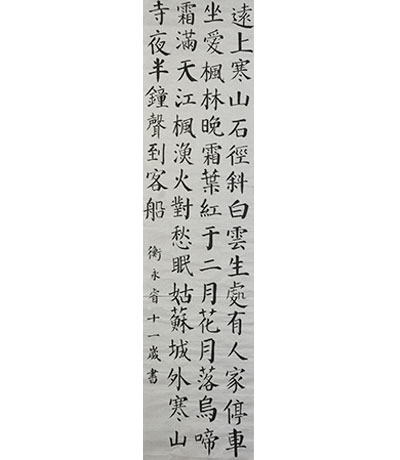 遠上寒山石徑斜白雲生處有人家停車
坐愛楓林晚霜葉紅于二月花月落烏啼
霜滿天江楓漁火對愁眠姑蘇城外寒山
寺夜半鐘聲到客船
衡永睿十一歲書